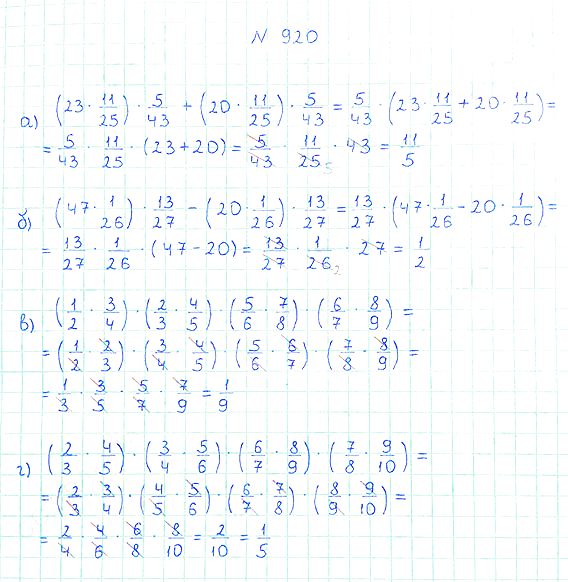 N 920
а) (23 · 11/25) · 5/43 + (20 · 11/25) · 5/43 = 5/43 · (23 · 11/25 + 20 · 11/25) =
= 5/43 · 11/25 · (23+20) = 5/43 · 11/25 5 · 43 = 11/5
б) (47 · 1/26) · 13/27 - (20 · 1/26) · 13/27 = 13/27 · (47 · 1/26 - 20 · 1/26) =
= 13/27 · 1/26 · (47-20) = 13/27 · 1/26 2 · 27 = 1/2
в) (1/2 · 3/4) · (2/3 · 4/5) · (5/6 · 7/8) · (6/7 · 8/9) =
= (1/2 · 2/3) · (3/4 · 4/5) · (5/6 · 6/7) · (7/8 · 8/9) =
= 1/3 · 3/5 · 5/7 · 7/9 = 1/9
г) (2/3 · 4/5) · (3/4 · 5/6) · (6/7 · 8/9) · (7/8 · 9/10) =
= (2/3 · 3/4) · (4/5 · 5/6) · (6/7 · 7/8) · (8/9 · 9/10) =
= 2/4 · 4/6 · 6/8 · 8/10 = 2/10 = 1/5